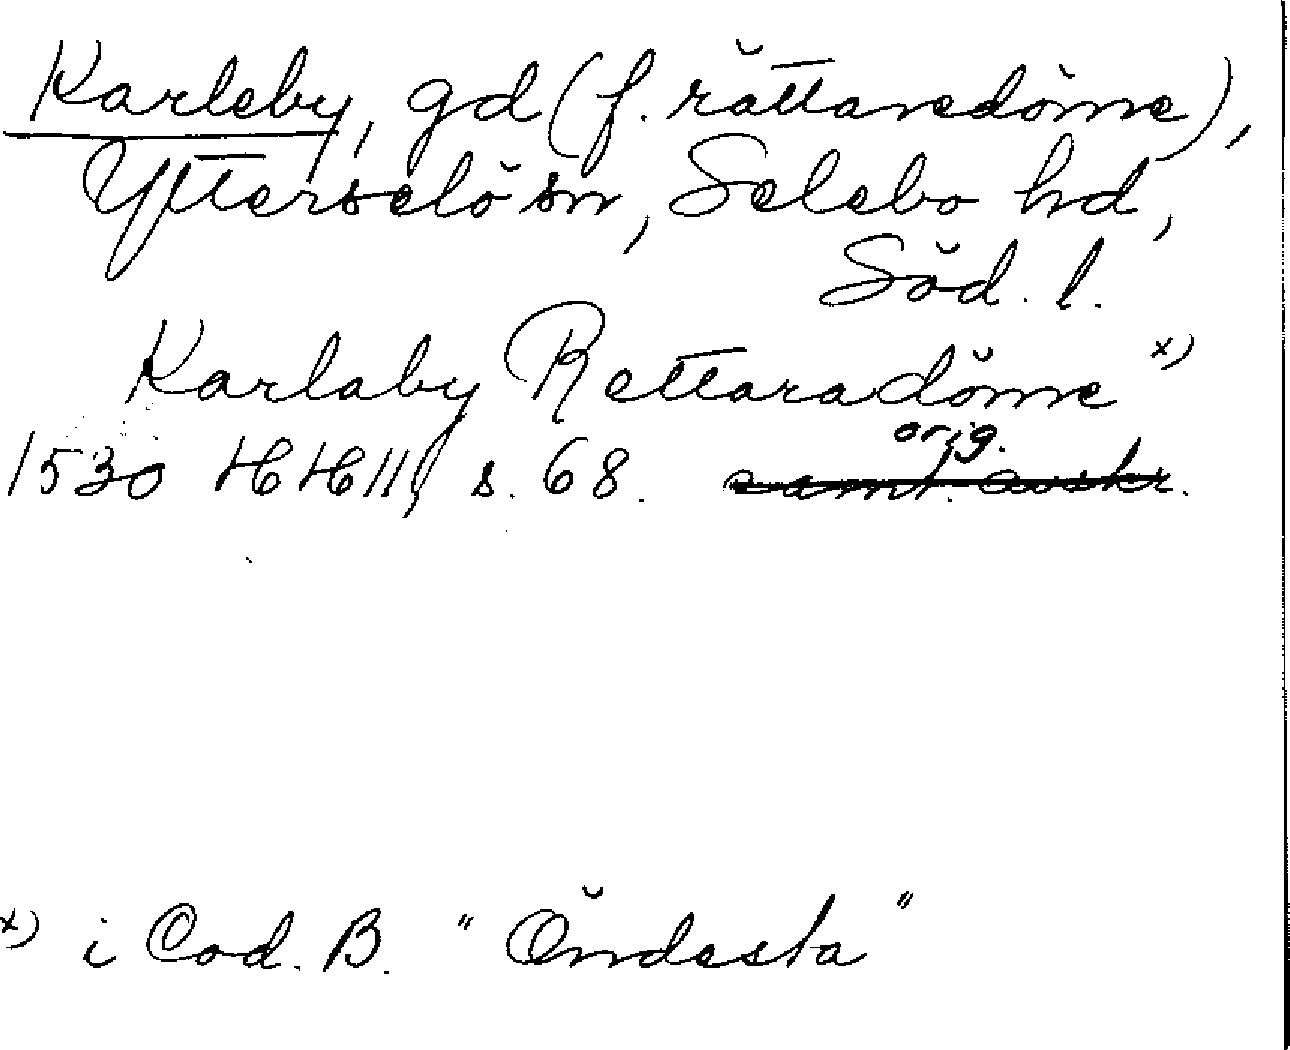 Karleby, gd (f. rättaredöme),
Ytterselö sn, Selebo hd,
Söd. l.
Karlaby Rettaradöme x)
orig.
1530 HH 11, s. 68. samt. avskr.
x) i Cod. B. "Öndesta"